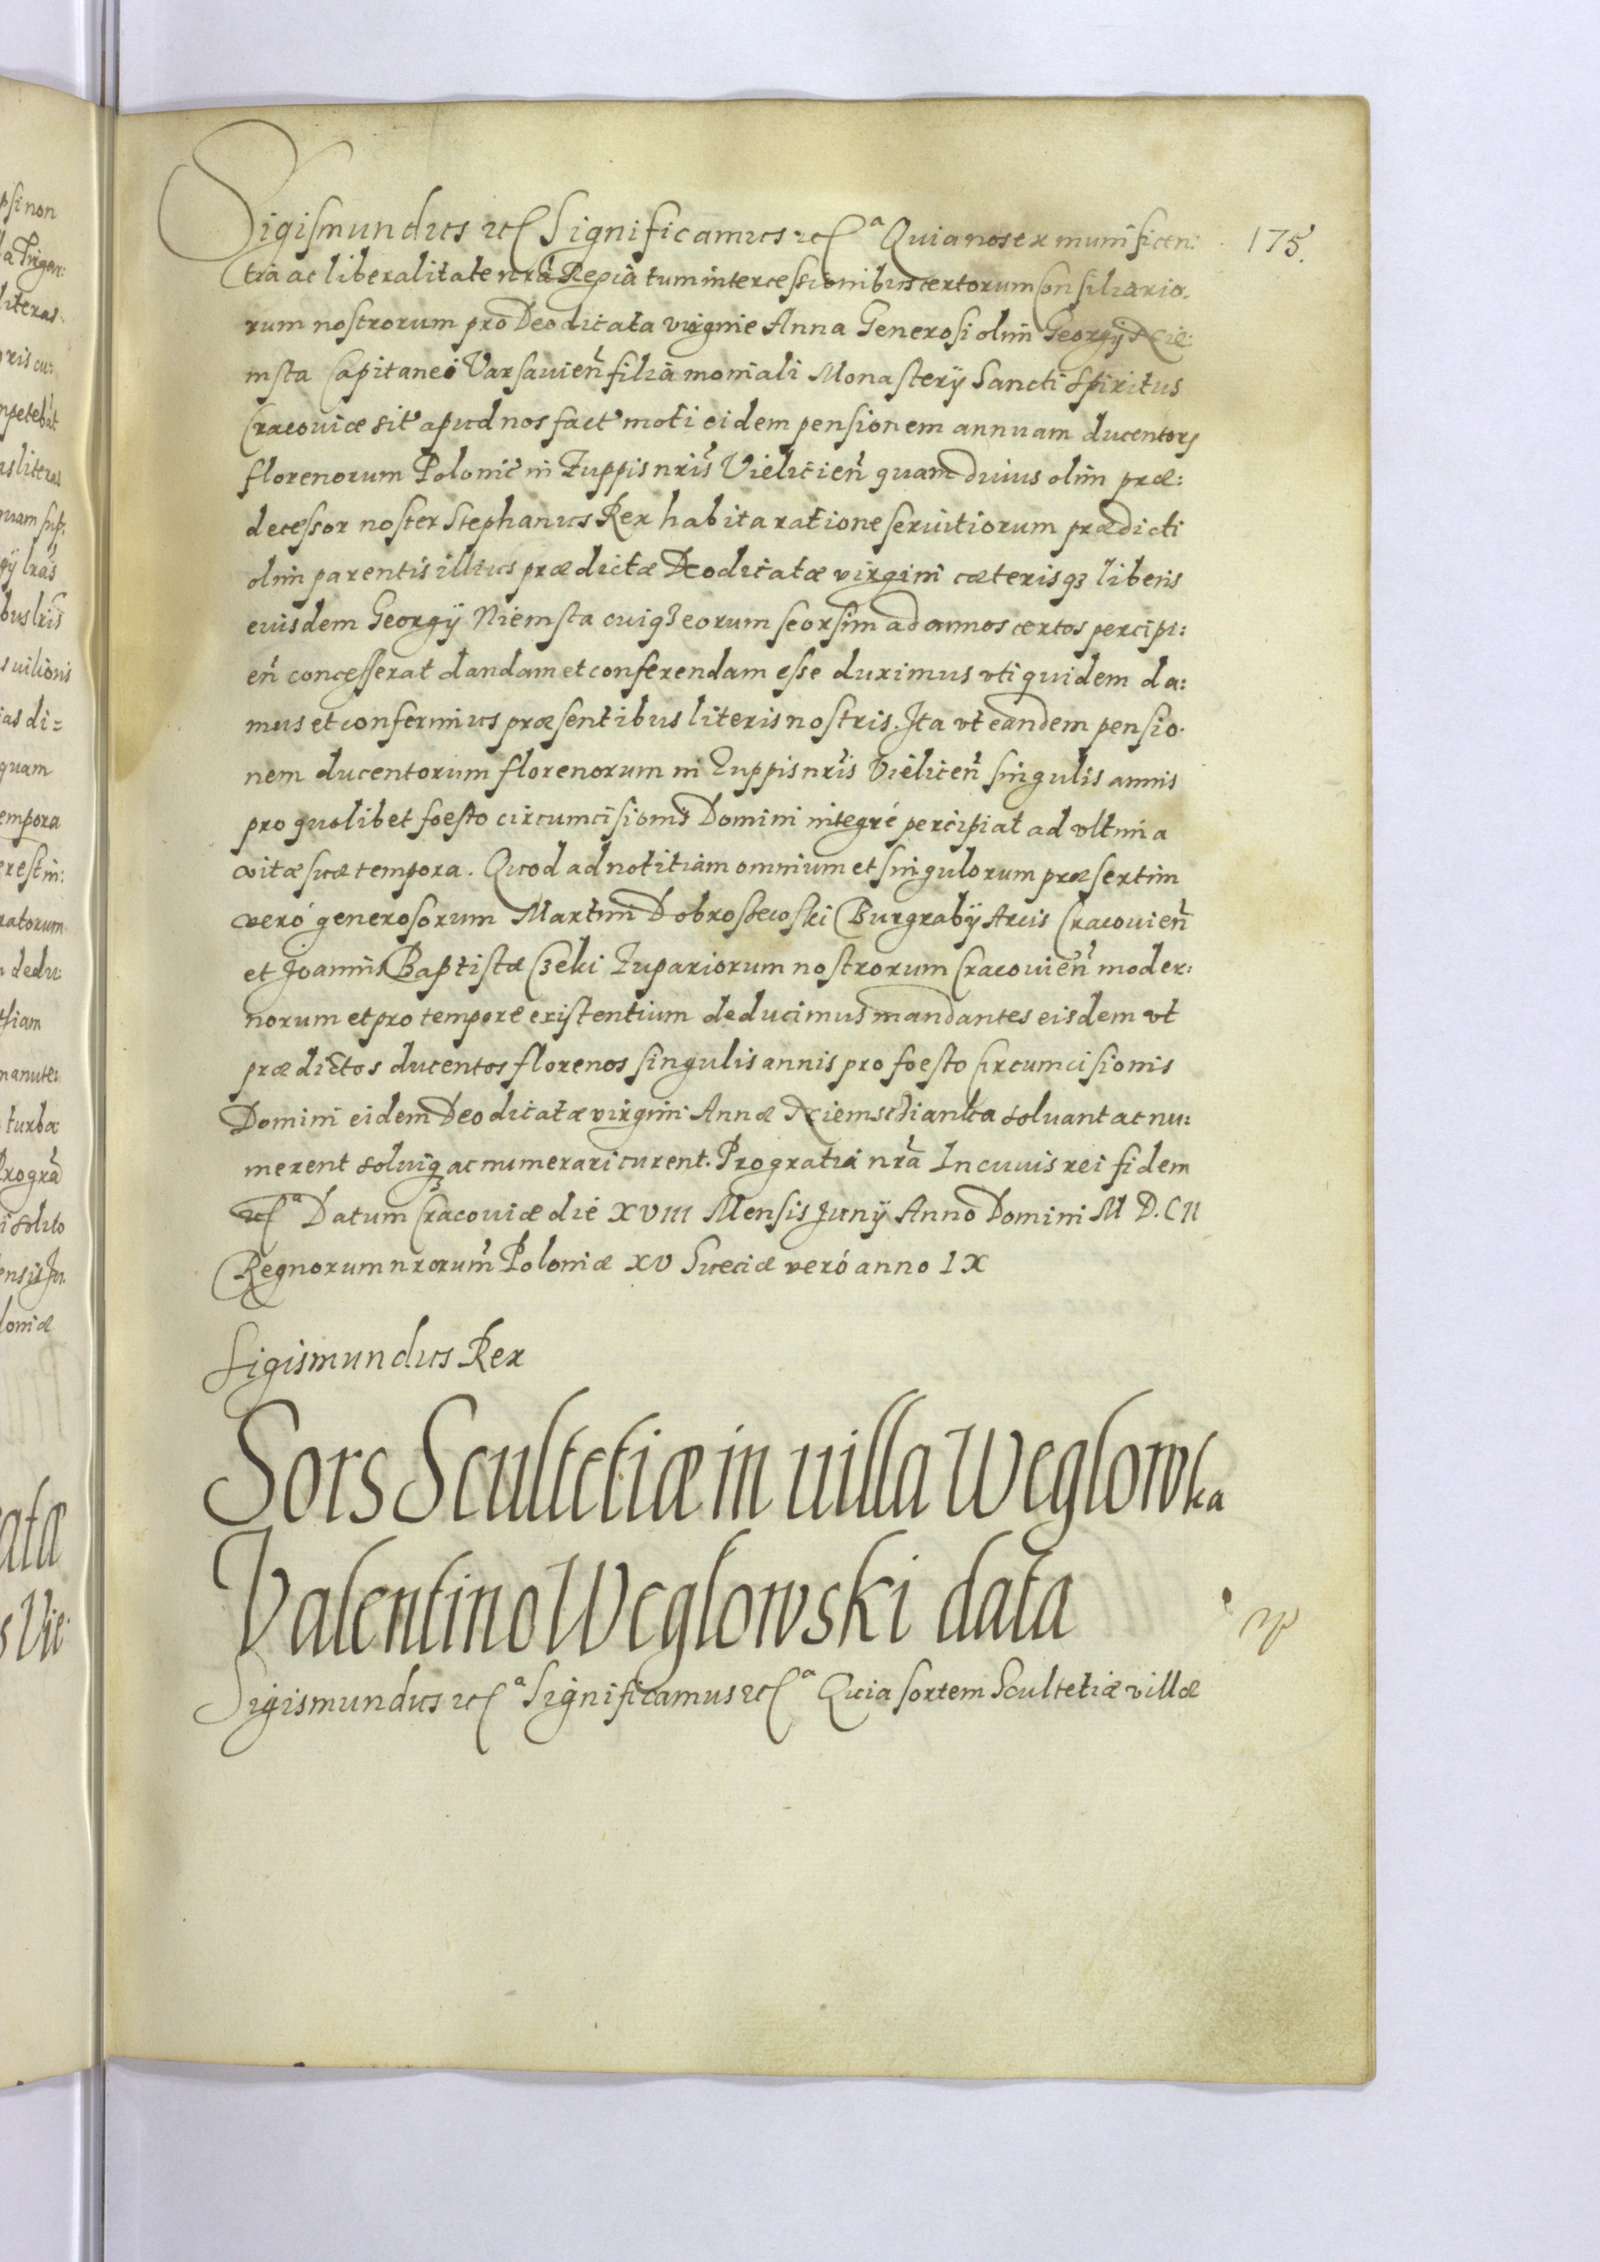 Sigismundus etc Significamus etc a Quia nos ex munificen: 175.
tia ac liberalitate nrã Regia tum intercessionibus certorum Consiliario.
rum nostrorum pro Deodicata virgine Anna Generosi olim Georgij Nie:
msta Capitanei Varsavien̄ filia moniali Monasterij Sancti Spiritus
Cracoviæ sit' apud nos fact' moti eidem pensionem annuam ducentor
florenorum Polonic̄ in Zuppis nris̄ Vielicien̄ quam divus olim præ:
decessor noster Stephanus Rex habita ratione servitiorum prædicti
olim parentis illius prædictæ Deodicatæ virgini cæterisqz liberis
eiusdem Georgij Niemsta cuiqz eorum seorsim ad annos certos percipi:
en̄ concesserat dandam et conferendam esse duximus uti quidem da:
mus et conferimus præsentibus literis nostris. Ita ut eandem pensio.
nem ducentorum florenorum in Zuppis nris̄ Vielicen̄ singulis annis
pro quolibet foesto circumcisionis Domini integré percipiat ad ultima
vitæ suæ tempora. Quod ad notitiam omnium et singulorum præsertim
veró generosorum Martini Dobrostewski Burgrabij Arcis Cracovien̄
et Joannis Baptistæ Czeki Zupariorum nostrorum Cracovien̄ moder:
norum et pro tempore existentium deducimus mandantes eisdem ut
prædictos ducentos florenos singulis annis pro foesto Circumcisionis
Domini eidem Deodicatæ virgini Annæ Niemscianka solvant ac nu:
merent solviqz ac numerari curent. Pro gratia nrã In cuius rei fidem
etc a Datum Cracoviæ die XVIII Mensis Junij Anno Domini M D. CII
Regnorum nrorum̄ Poloniæ XV Sueciæ veró anno IX
Sigismundus Rex
Sors Scultetiæ in villa Weglowka
Valentino Weglowski data
Sigismundus etc a Significamus etc a Quia sortem Scultetiæ villæ